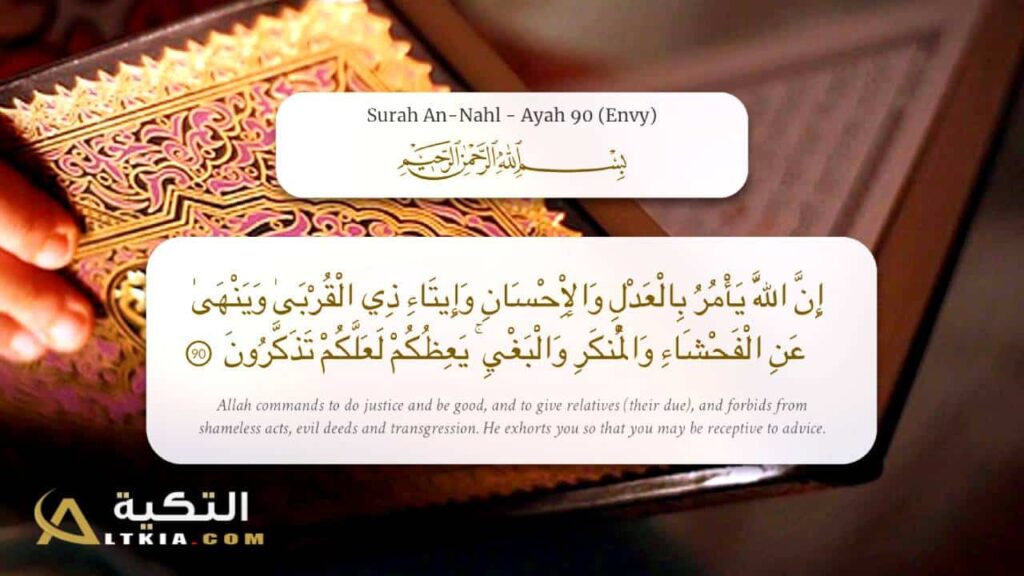 Surah An-Nahl - Ayah 90 (Envy)
بِسْمِ اللَّهِ الرَّحْمَٰنِ الرَّحِيمِ
إِنَّ اللَّهَ يَأْمُرُ بِالْعَدْلِ وَالْإِحْسَانِ وَإِيتَاءِ ذِي الْقُرْبَىٰ وَيَنْهَىٰ
عَنِ الْفَحْشَاءِ وَالْمُنكَرِ وَالْبَغْيِ ۚ يَعِظُكُمْ لَعَلَّكُمْ تَذَكَّرُونَ 90
Allah commands to do justice and be good, and to give relatives (their due), and forbids from
shameless acts, evil deeds and transgression. He exhorts you so that you may be receptive to advice.
التكية
ALTKIA.COM